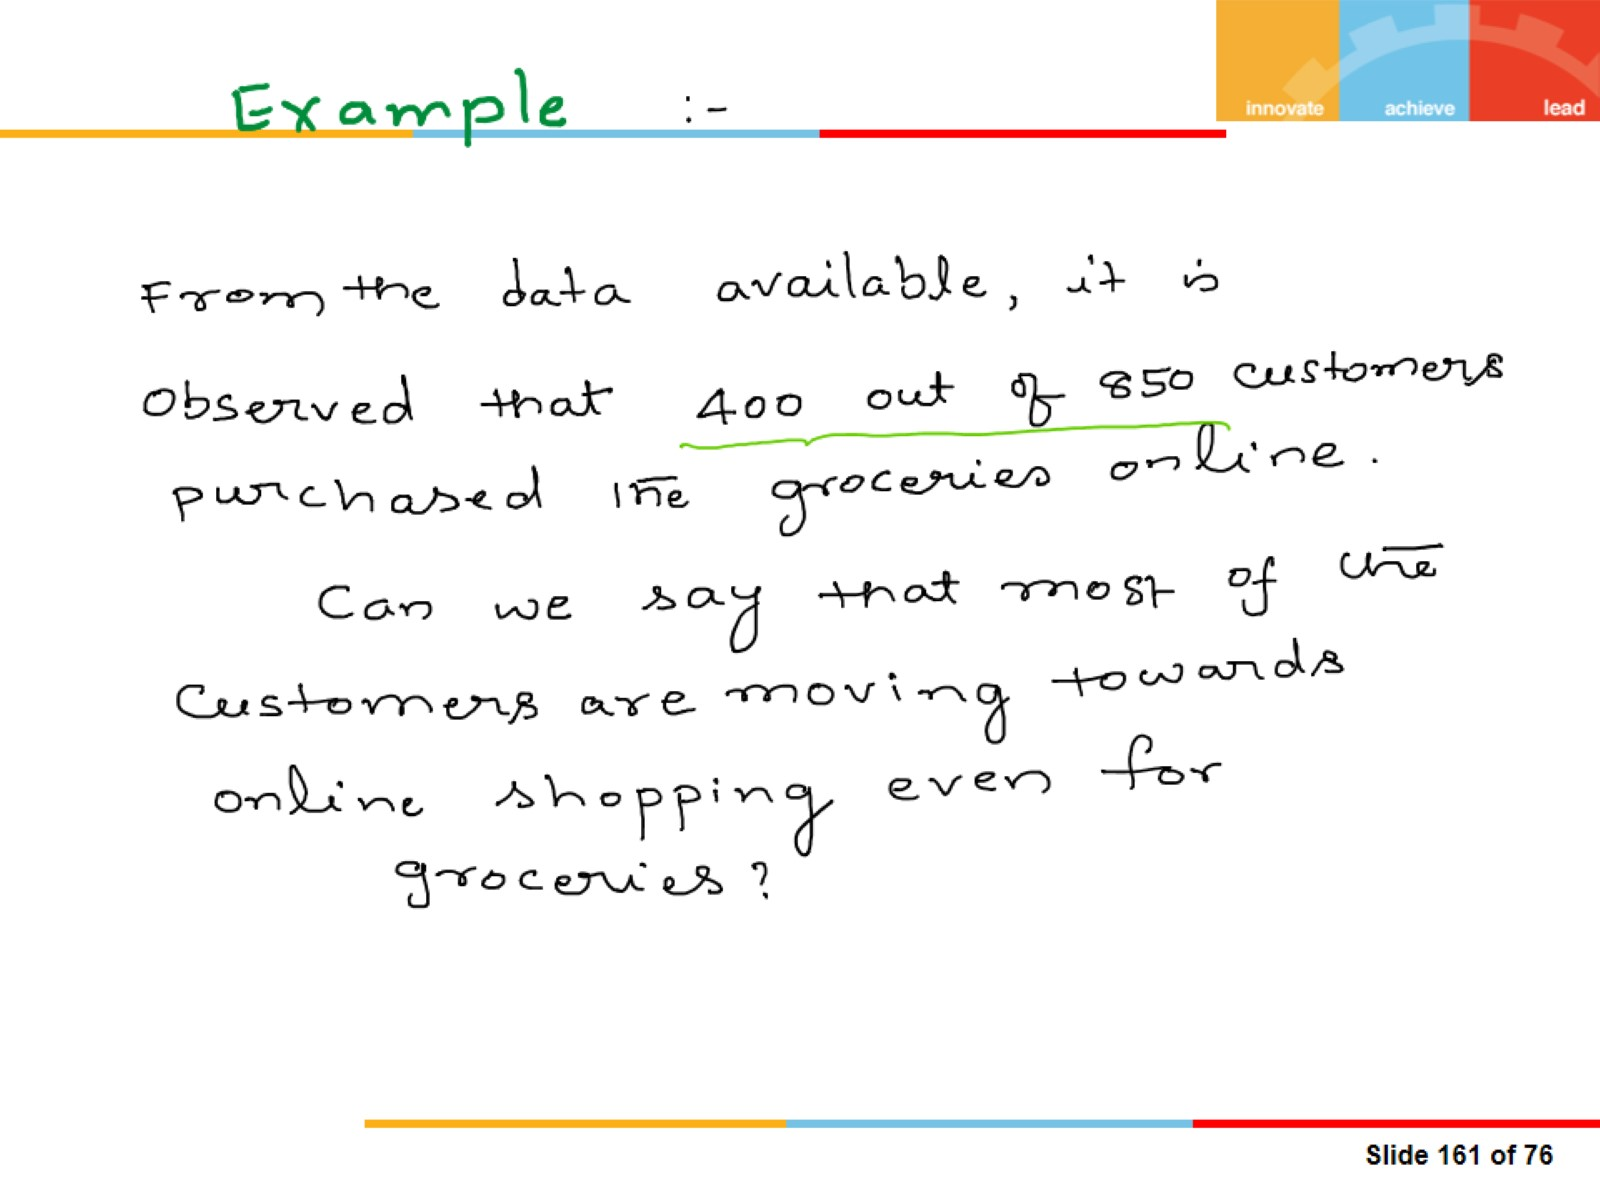 innovate achieve lead
Example :-
From the data available, it is
observed that 400 out of 850 customers
purchased the groceries online.
Can we say that most of the
customers are moving towards
online shopping even for
groceries?
Slide 161 of 76